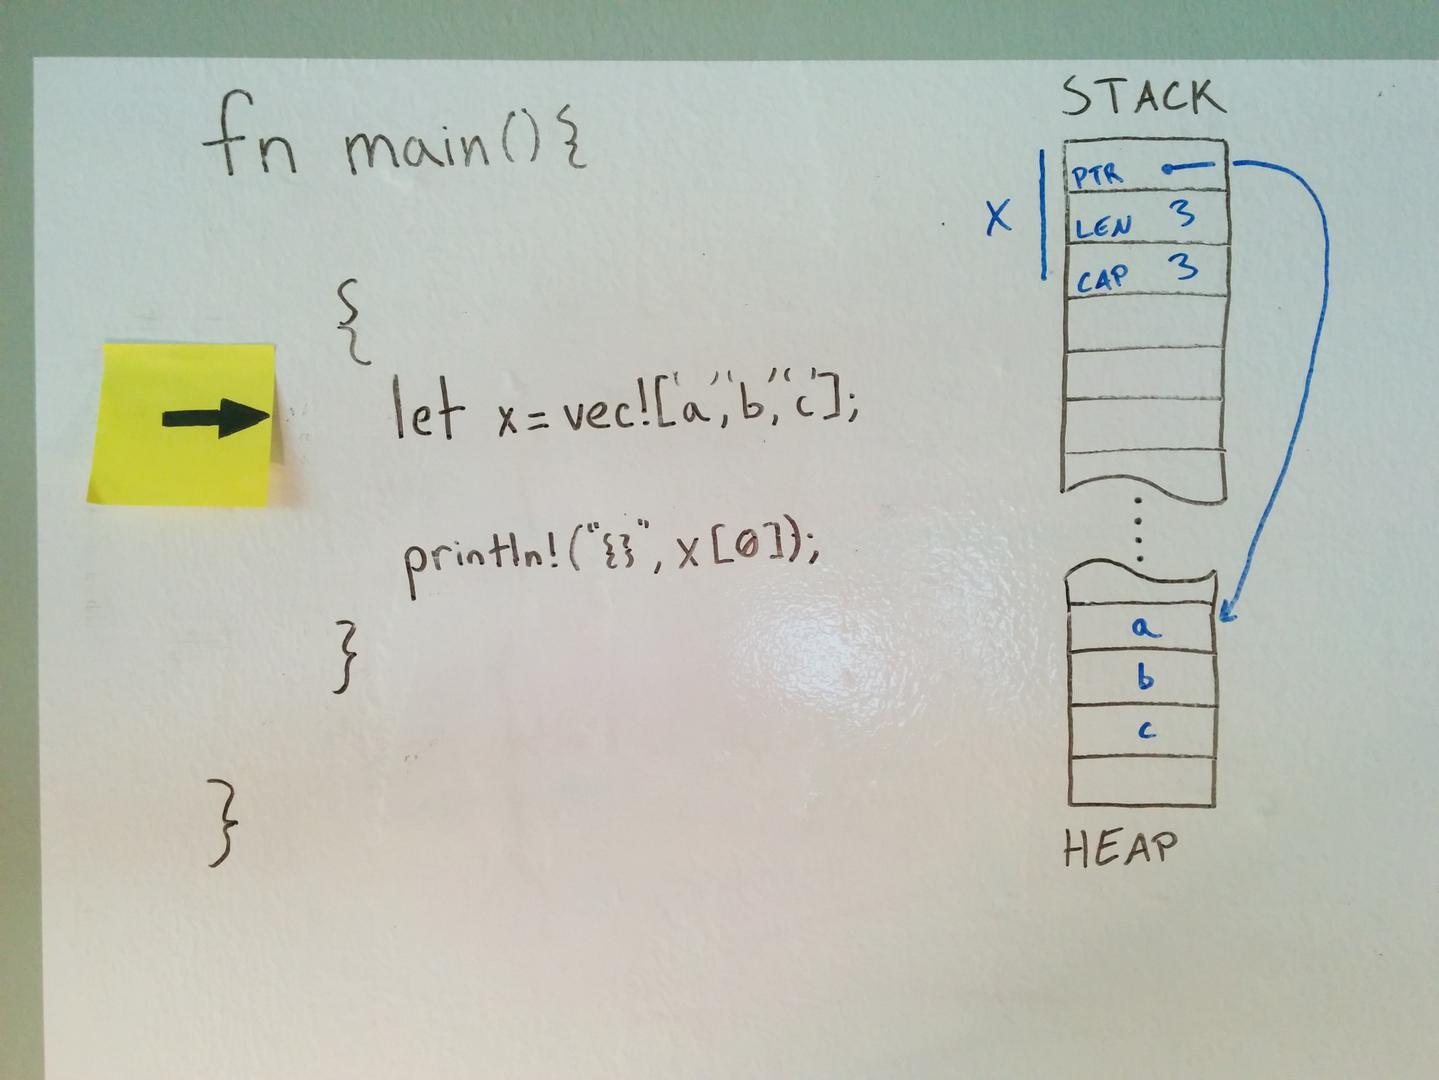 fn main(){
{
let x = vec!['a','b','c'];
println!("{}", x[0]);
}
}
STACK
X
PTR
LEN 3
CAP 3
a
b
c
HEAP